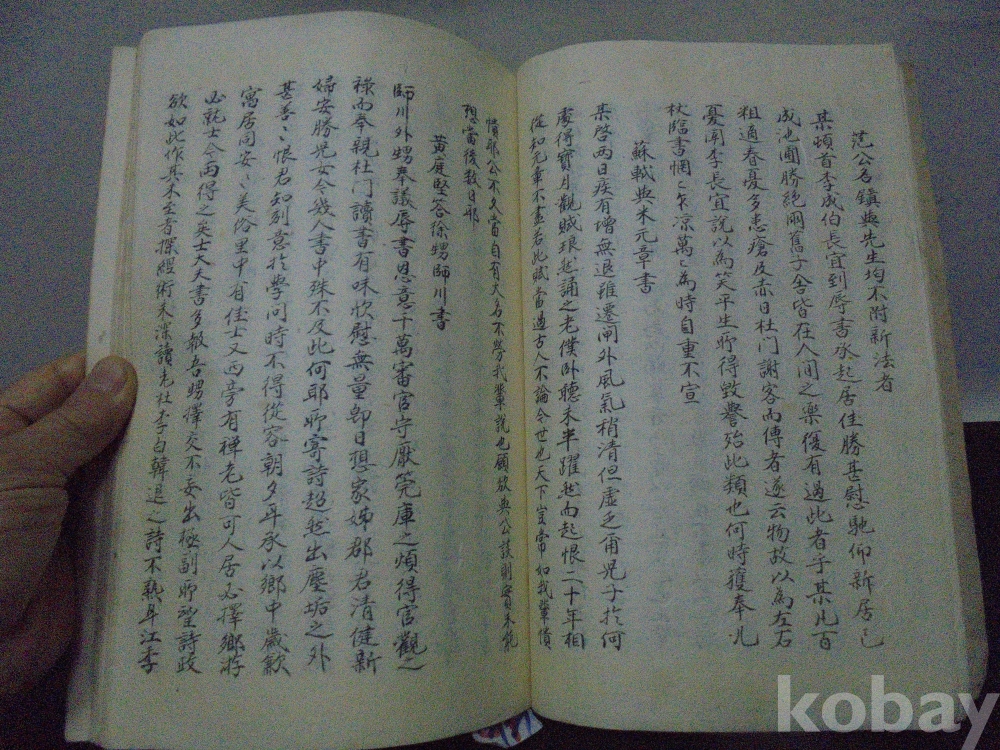 范公名鎮與先生均不附新法者
某頓首李成伯長官到辱書承起居佳勝甚慰馳仰新居已
成池圃勝絕朋舊子舍皆在人間之樂復有過此者乎某凡百
粗適春夏多患瘡及赤目杜門謝客而傳者遂云物故以為左右
憂聞李長官說以為笑平生所得毀譽殆此類也何時獲奉几
杖臨書惘惘乍涼萬萬為時自重不宣
蘇軾與米元章書
某啓兩日疾有增無退雖遷閘外風氣稍清但虛乏甭兒子於何
處得寶月觀賦琅然誦之老僕臥聽未半躍然而起恨二十年相
從知元章不盡若此賦當過古人不論今世也天下豈常如我輩憒
憒耶公不久當自有大名不勞我輩說也願欲與公談則實未能
想當後數日耶
黃庭堅答徐甥師川書
師川外甥奉議辱書恩意千萬審官守厭筦庫之煩得宮觀之
祿而奉親杜門讀書有味欣慰無量即日想家姊郡君清健新
婦安勝兒女今幾人書中殊不及此何耶所寄詩超然出塵垢之外
甚善々恨君知刻意於學問時不得從容朝夕耳承以鄉中歲歉
寓居同安々美俗里中有佳士又西旁有禪老皆可人居必擇鄉游
必就士今兩得之矣士大夫書多報吾甥擇交不妄出極副所望詩政
欲如此作其未至者探經術未深讀老杜李白韓退之詩不熟耳江季
kobay